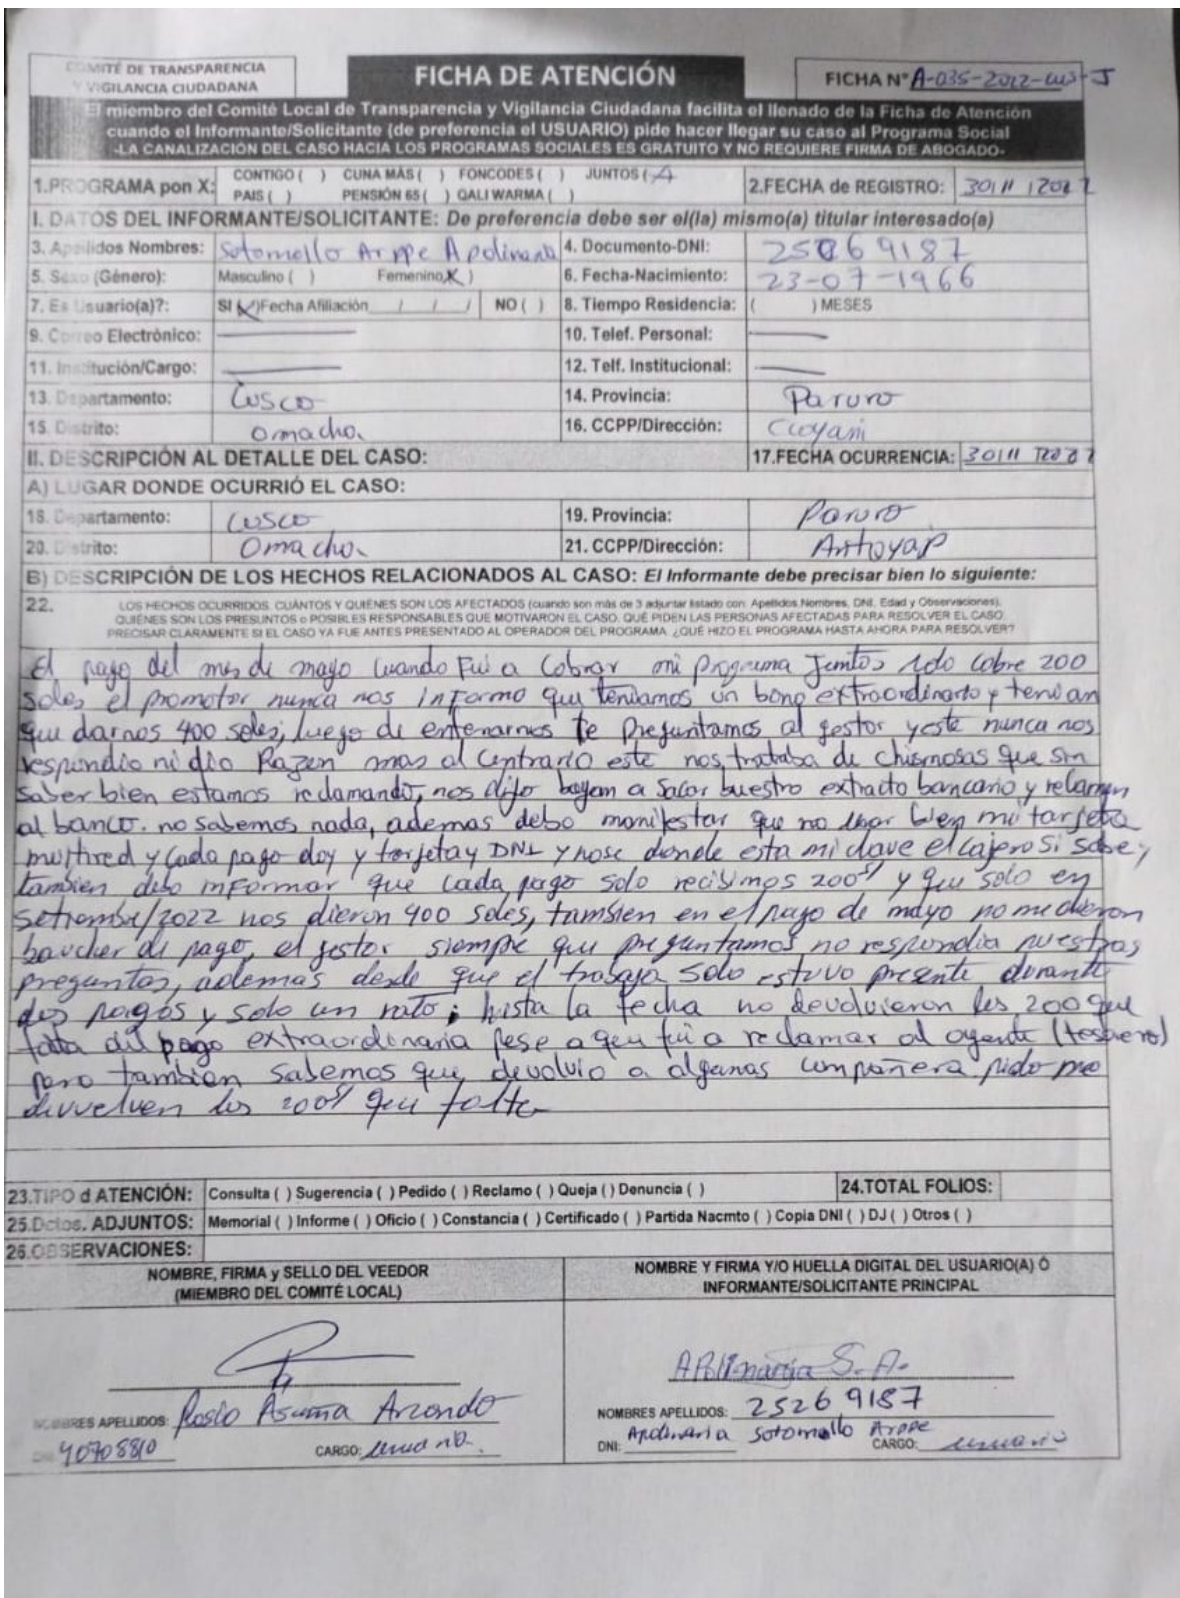 COMITÉ DE TRANSPARENCIA
Y VIGILANCIA CIUDADANA
FICHA DE ATENCIÓN
FICHA N° A-035-2022-CUS-J
El miembro del Comité Local de Transparencia y Vigilancia Ciudadana facilita el llenado de la Ficha de Atención
cuando el Informante/Solicitante (de preferencia el USUARIO) pide hacer llegar su caso al Programa Social
-LA CANALIZACIÓN DEL CASO HACIA LOS PROGRAMAS SOCIALES ES GRATUITO Y NO REQUIERE FIRMA DE ABOGADO-
1.PROGRAMA pon X: CONTIGO ( ) CUNA MÁS ( ) FONCODES ( ) JUNTOS ( )
PAIS ( ) PENSIÓN 65 ( ) QALI WARMA ( )
2.FECHA de REGISTRO: 30/11/2022
I. DATOS DEL INFORMANTE/SOLICITANTE: De preferencia debe ser el(la) mismo(a) titular interesado(a)
3. Apellidos Nombres: Sotomollo Arppe Apolinaria 4. Documento-DNI: 25269187
5. Sexo (Género): Masculino ( ) Femenino(X) 6. Fecha-Nacimiento: 23-07-1966
7. Es Usuario(a)?: SI (X)Fecha Afiliación / / / NO ( ) 8. Tiempo Residencia: ( ) MESES
9. Correo Electrónico: 10. Telef. Personal:
11. Institución/Cargo: 12. Telf. Institucional:
13. Departamento: Cusco 14. Provincia: Paruro
15. Distrito: Omacha. 16. CCPP/Dirección:
II. DESCRIPCIÓN AL DETALLE DEL CASO: 17.FECHA OCURRENCIA: 30/11
A) LUGAR DONDE OCURRIÓ EL CASO:
18. Departamento: Cusco 19. Provincia: Paruro
20. Distrito: Omacha. 21. CCPP/Dirección:
B) DESCRIPCIÓN DE LOS HECHOS RELACIONADOS AL CASO: El Informante debe precisar bien lo siguiente:
22. LOS HECHOS OCURRIDOS. CUÁNTOS Y QUIÉNES SON LOS AFECTADOS (cuando son más de 3 adjuntar listado con: Apellidos,Nombres, DNI, Edad y Observaciones).
QUIÉNES SON LOS PRESUNTOS o POSIBLES RESPONSABLES QUE MOTIVARON EL CASO. QUÉ PIDEN LAS PERSONAS AFECTADAS PARA RESOLVER EL CASO.
PRECISAR CLARAMENTE SI EL CASO YA FUE ANTES PRESENTADO AL OPERADOR DEL PROGRAMA. ¿QUÉ HIZO EL PROGRAMA HASTA AHORA PARA RESOLVER?
El pago del mes de mayo cuando Fui a Cobrar mi programa Juntos solo cobre 200
soles, el promotor nunca nos informo que teniamos un bono extraordinario y tenian
que darnos 400 soles, luego de enterarnos le preguntamos al gestor y este nunca nos
respondio ni dio Razon mas al Contrario este nos trataba de chismosas que sin
saber bien estamos reclamando, nos dijo bayan a sacar buestro extracto bancario y reclamen
al banco. no sabemos nada, ademas debo manifestar que no usar bien mi tarjeta
multired y cada pago doy y tarjeta y DNI y nose donde esta mi clave el cajero si sabe,
tambien debo informar que cada pago solo recibimos 200 s/ y que solo en
Setiembre/2022 nos dieron 400 soles, tambien en el pago de mayo no me dieron
baucher de pago, el gestor siempre que preguntamos no respondia nuestras
preguntas, ademas desde que el trabaja solo estuvo presente durante
dos pagos y solo un rato; hasta la fecha no devolvieron los 200 que
falta del pago extraordinaria pese a que fui a reclamar al agente (tesorero)
pero tambien sabemos que devolvio a algunas compañera pido me
devuelven los 200 s/ que falta
23.TIPO d ATENCIÓN: Consulta ( ) Sugerencia ( ) Pedido ( ) Reclamo ( ) Queja ( ) Denuncia ( ) 24.TOTAL FOLIOS:
25.Dctos. ADJUNTOS: Memorial ( ) Informe ( ) Oficio ( ) Constancia ( ) Certificado ( ) Partida Nacmto ( ) Copia DNI ( ) DJ ( ) Otros ( )
26.OBSERVACIONES:
NOMBRE, FIRMA y SELLO DEL VEEDOR
(MIEMBRO DEL COMITÉ LOCAL)
NOMBRE Y FIRMA Y/O HUELLA DIGITAL DEL USUARIO(A) Ó
INFORMANTE/SOLICITANTE PRINCIPAL
APolinaria S. A.
NOMBRES APELLIDOS: Rosio Asuma Arzondo
DNI: 40708810 CARGO: usuario.
NOMBRES APELLIDOS: 25269187
DNI: Apolinaria Sotomollo Arppe CARGO: usuario